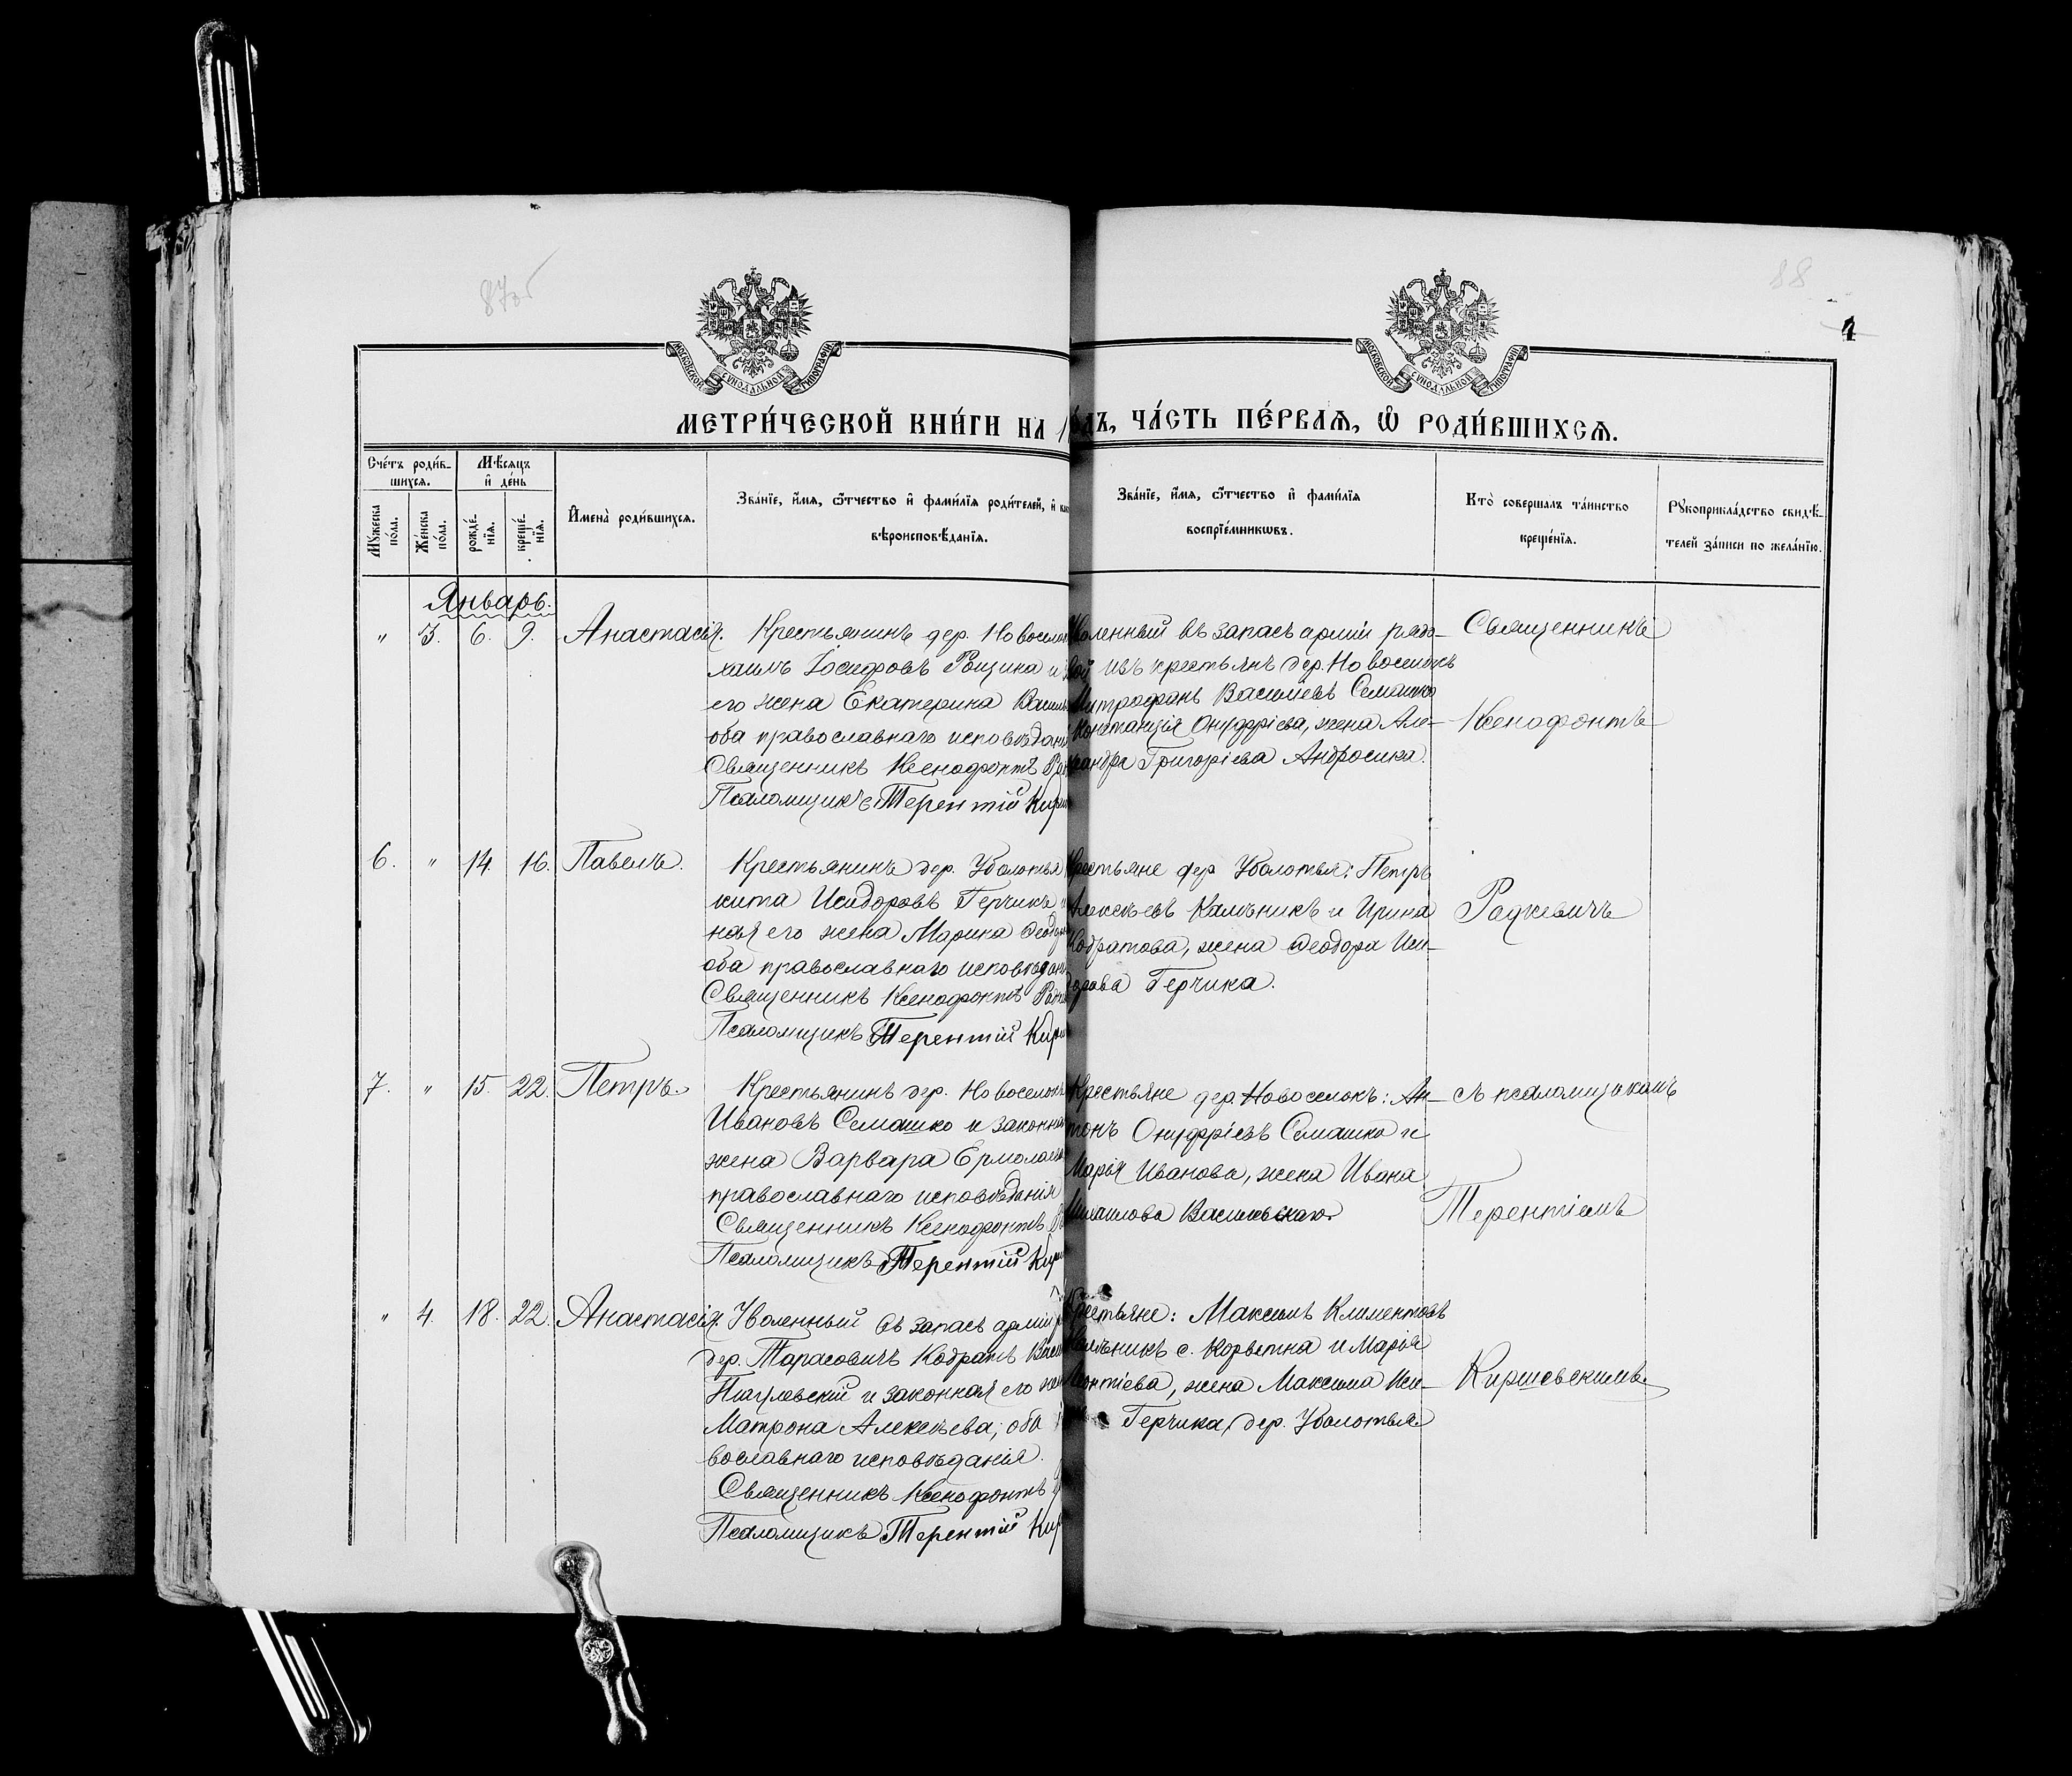 87об
88
МОСКОВСКОЙ СѴНОДАЛЬНОЙ ТИПОГРАФІИ
МОСКОВСКОЙ СѴНОДАЛЬНОЙ ТИПОГРАФІИ
МЕТРИ́ЧЕСКОЙ КНИ́ГИ НА
ЧА́СТЬ ПЕ́РВАѦ, Ѡ РОДИ́ВШИХСѦ.
Сче́тъ роди́в-
шихсѧ.
Мꙋ́жеска по́ла.
Же́нска по́ла.
Мѣ́сѧцъ
и҆ де́нь
рожде́-нїѧ.
креще́-нїѧ.
И҆мена̀ роди́вшихсѧ.
Зва́нїе, и҆́мѧ, ѻ҆́тчество и҆ фами́лїѧ роди́телей, и҆
вѣроисповѣ́данїѧ.
Зва́нїе, и҆́мѧ, ѻ҆́тчество и҆ фами́лїѧ
воспрїе́мникѡвъ.
Кто̀ соверша́лъ та́инство
креще́нїѧ.
Рꙋкоприкла́дство свидѣ́-
телей за́писи по жела́нїю.
Январь.
" 3. 6. 9. Анастасія.
Крестьянинъ дер.
Іосифовъ Рощина и
его жена Екатерина
оба православнаго
Священникъ Ксенофонтъ
Псаломщикъ Терентій
въ запасъ арміи рядо-
изъ крестьянъ дер. Новоселокъ
Митрофанъ Васильевъ Семашко
Констанція Онуфріева, жена Але-
Григоріева Андросика.
Священникъ
Ксенофонтъ
6. " 14. 16. Павелъ.
Крестьянинъ дер. Уболотья
Исидоровъ Герчикъ
ная его жена Марина
оба православнаго
Священникъ Ксенофонтъ
Псаломщикъ Терентій
Крестьяне дер. Уболотья: Петръ
Алексѣевъ Калѣникъ и Ирина
Кодратова, жена Ѳеодора Иси-
Герчика.
Радкевичъ
7. " 15. 22. Петръ.
Крестьянинъ дер.
Ивановъ Семашко и
жена Варвара
православнаго исповѣданія
Священникъ Ксенофонтъ
Псаломщикъ Терентій
Крестьяне дер. Новоселокъ: Ан-
тонъ Онуфріевъ Семашко и
Марія Иванова, жена Ивана
Васильевскаго.
съ псаломщикомъ
Терентіемъ
" 4. 18. 22. Анастасія.
Уволенный въ запасъ арміи
дер. Тарасовичъ Кодратъ
Пигулевскій и законная его
Матрона Алексѣева, оба
вославнаго исповѣданія.
Священникъ Ксенофонтъ
Псаломщикъ Терентій
Крестьяне: Максимъ Климентовъ
с. Корветна и Марія
жена Максима Иси-
Герчика, дер. Уболотья.
Киршевскимъ.